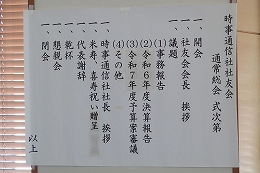 時事通信社社友会
通常総会 式次第
一、開会
一、社友会会長 挨拶
一、議題
(1)事務報告
(2)令和6年度決算報告
(3)令和7年度予算案審議
(4)その他
一、時事通信社社長 挨拶
一、米寿、喜寿祝い贈呈
一、代表謝辞
一、乾杯
一、懇親会
一、閉会
以上